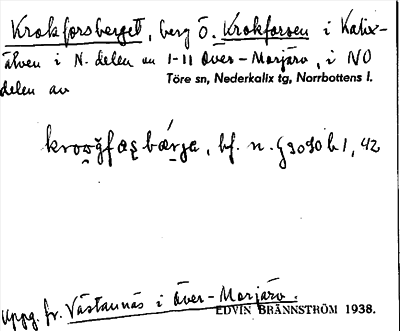 Krokforsberget, berg Ö. Krokforsen i Kalix-
älven i N. delen av 1-11 Över-Morjärv, i NO
Töre sn, Nederkalix tg, Norrbottens l.
delen av
bf. n. 1, 42
Uppg. fr. Västannäs i Över-Morjärv.
EDVIN BRÄNNSTRÖM 1938.